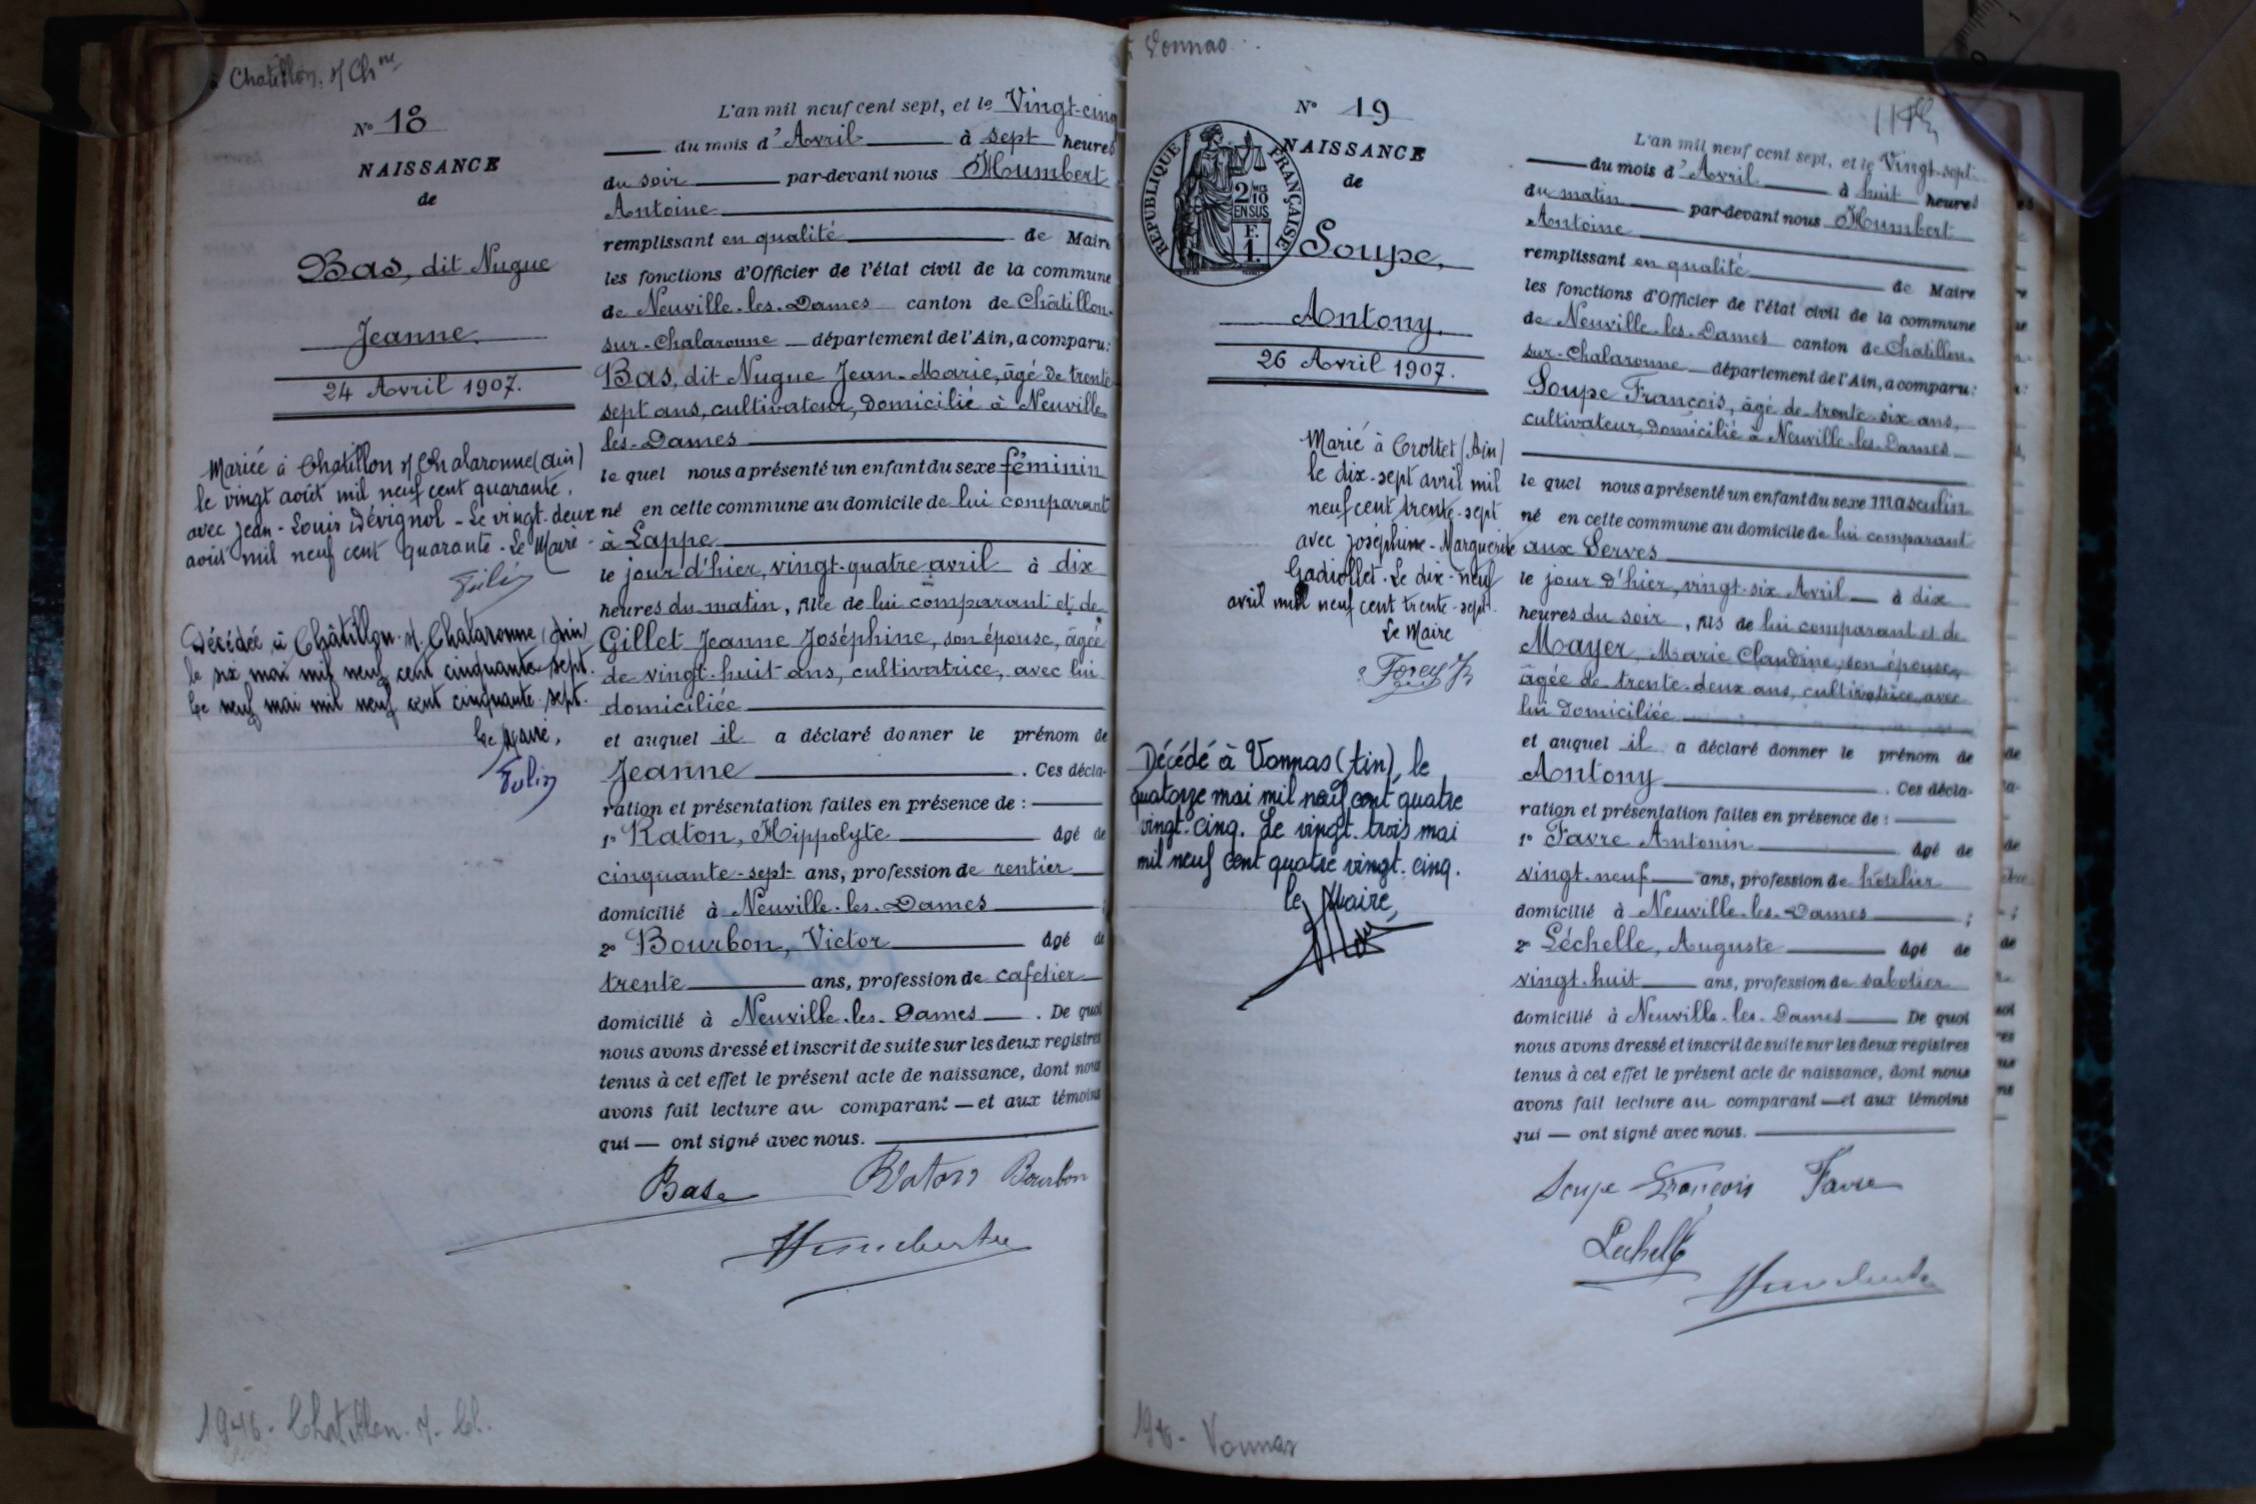 à Chatillon. s/ Chne
N° 18
NAISSANCE
de
Bas, dit Nugue
Jeanne.
24 Avril 1907.
Mariée à Chatillon s/ Chalaronne (Ain)
le vingt août mil neuf cent quarante,
avec Jean-Louis Dévignol - Le vingt-deux
août mil neuf cent quarante - Le Maire -
Décédée à Châtillon-s/ Chalaronne (Ain)
le six mai mil neuf cent cinquante sept.
Le neuf mai mil neuf cent cinquante-sept.
Le Maire,
L'an mil neuf cent sept, et le Vingt-cinq
du mois d'Avril à sept heures
du soir par-devant nous Humbert
Antoine
remplissant en qualité de Maire
les fonctions d'Officier de l'état civil de la commune
de Neuville-les-Dames canton de Châtillon-
sur-Chalaronne département de l'Ain, a comparu:
Bas, dit Nugue Jean-Marie, âgé de trente
sept ans, cultivateur, domicilié à Neuville
les-Dames
le quel nous a présenté un enfant du sexe féminin
né en cette commune au domicile de lui comparant
à Lappe
le jour d'hier, vingt-quatre avril à dix
heures du matin, fille de lui comparant et de
Gillet Jeanne Joséphine, son épouse, âgée
de vingt-huit ans, cultivatrice, avec lui
domiciliée
et auquel il a déclaré donner le prénom de
Jeanne . Ces décla-
ration et présentation faites en présence de :
1° Raton, Hippolyte âgé de
cinquante-sept ans, profession de rentier
domicilié à Neuville-les-Dames ;
2° Bourbon, Victor âgé de
trente ans, profession de cafetier
domicilié à Neuville-les-Dames . De quoi
nous avons dressé et inscrit de suite sur les deux registres
tenus à cet effet le présent acte de naissance, dont nous
avons fait lecture au comparant — et aux témoins
qui — ont signé avec nous.
Bas Raton Bourbon
Humbert
1946 - Chatillon. s. Ch.
à Vonnas
N° 19
NAISSANCE
de
REPUBLIQUE FRANÇAISE
2/10
EN SUS
F.
1.
Soupe,
Antony.
26 Avril 1907.
Marié à Crottet (Ain)
le dix-sept avril mil
neuf cent trente-sept
avec Joséphine-Marguerite
Gadiollet. Le dix-neuf
avril mil neuf cent trente-sept.
Le Maire
Décédé à Vonnas (Ain), le
quatorze mai mil neuf cent quatre
vingt-cinq. Le vingt-trois mai
mil neuf cent quatre vingt-cinq.
le Maire,
L'an mil neuf cent sept, et le Vingt-sept
du mois d'Avril à huit heures
du matin par-devant nous Humbert
Antoine
remplissant en qualité de Maire
les fonctions d'Officier de l'état civil de la commune
de Neuville-les-Dames canton de Châtillon-
sur-Chalaronne département de l'Ain, a comparu:
Soupe François, âgé de trente-six ans,
cultivateur, domicilié à Neuville-les-Dames
le quel nous a présenté un enfant du sexe masculin
né en cette commune au domicile de lui comparant
aux Serves
le jour d'hier, vingt-six Avril à dix
heures du soir, fils de lui comparant et de
Mayer, Marie Claudine, son épouse,
âgée de trente-deux ans, cultivatrice, avec
lui domiciliée
et auquel il a déclaré donner le prénom de
Antony . Ces décla-
ration et présentation faites en présence de :
1° Favre Antonin âgé de
vingt-neuf ans, profession de hôtelier
domicilié à Neuville-les-Dames ;
2° Léchelle, Auguste âgé de
vingt-huit ans, profession de sabotier
domicilié à Neuville-les-Dames De quoi
nous avons dressé et inscrit de suite sur les deux registres
tenus à cet effet le présent acte de naissance, dont nous
avons fait lecture au comparant — et aux témoins
qui — ont signé avec nous.
Soupe François Favre
Lechelle
Humbert
Vonnas